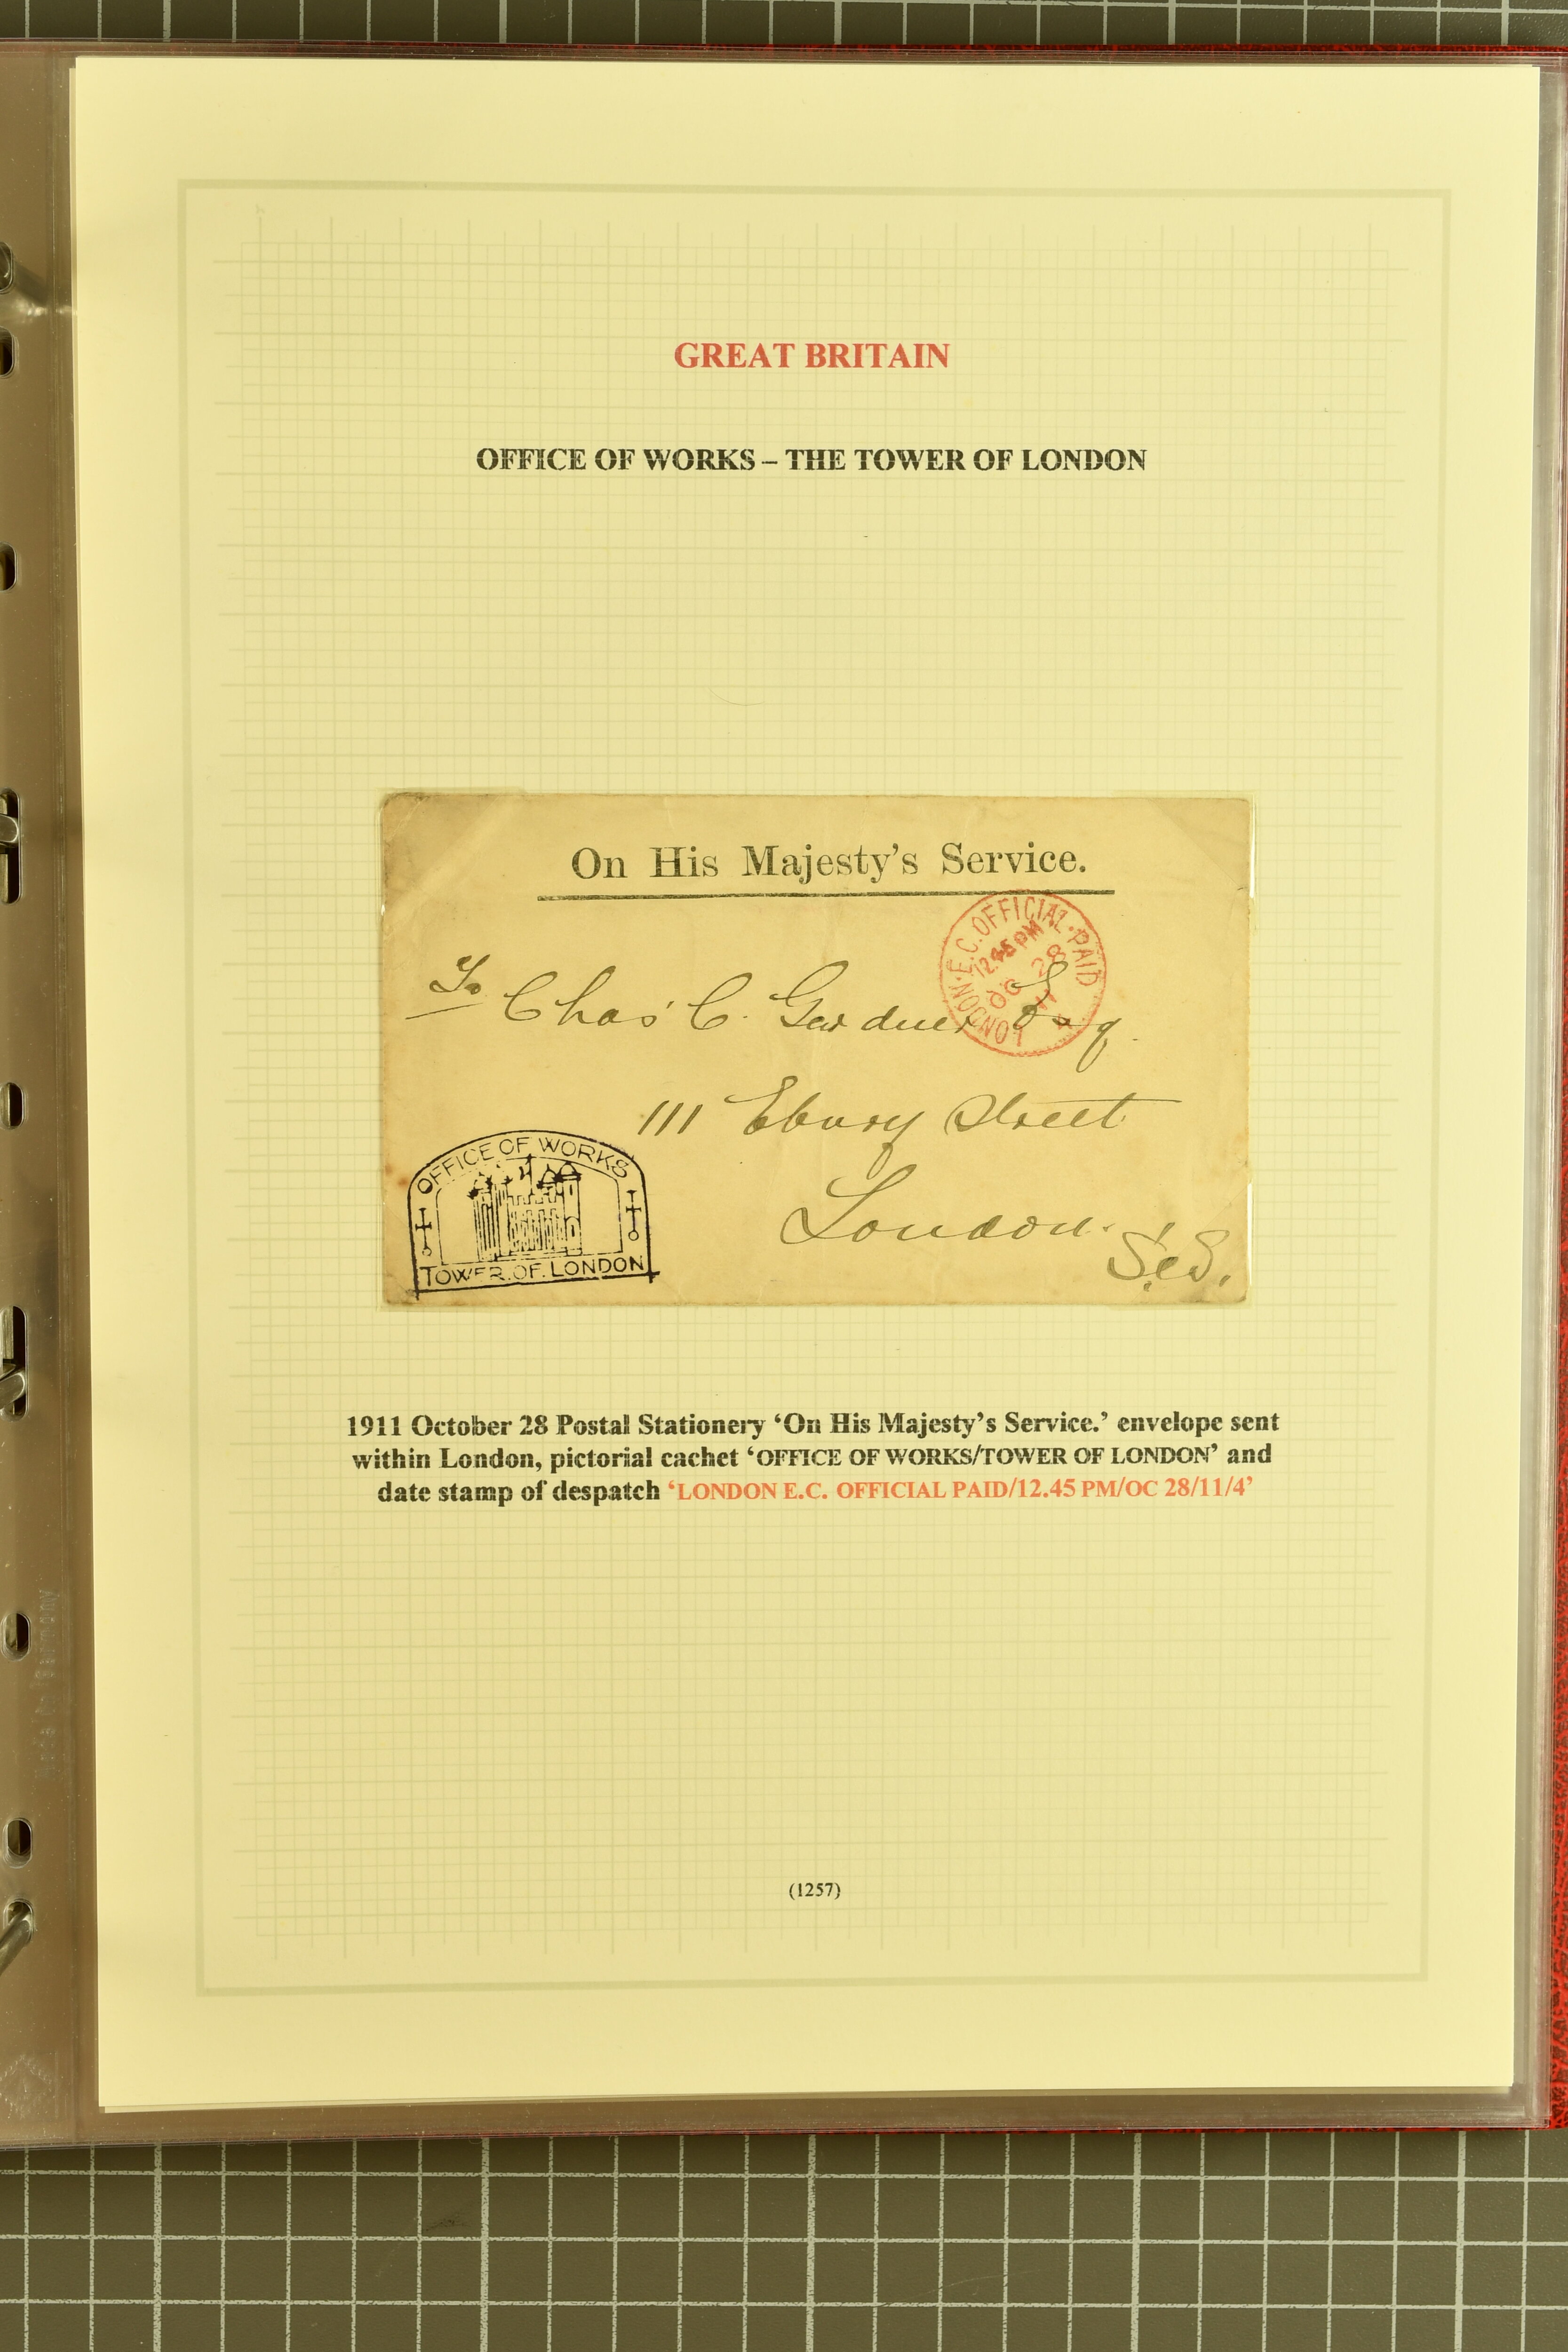 GREAT BRITAIN
OFFICE OF WORKS – THE TOWER OF LONDON
On His Majesty's Service.
LONDON·E.C. OFFICIAL·PAID
12.45 PM
OC 28
11
4
To Chas' C. Gardner Esq.
111 Ebury Street
London.
OFFICE OF WORKS
TOWER.OF.LONDON
1911 October 28 Postal Stationery 'On His Majesty's Service.' envelope sent
within London, pictorial cachet 'OFFICE OF WORKS/TOWER OF LONDON' and
date stamp of despatch 'LONDON E.C. OFFICIAL PAID/12.45 PM/OC 28/11/4'
(1257)